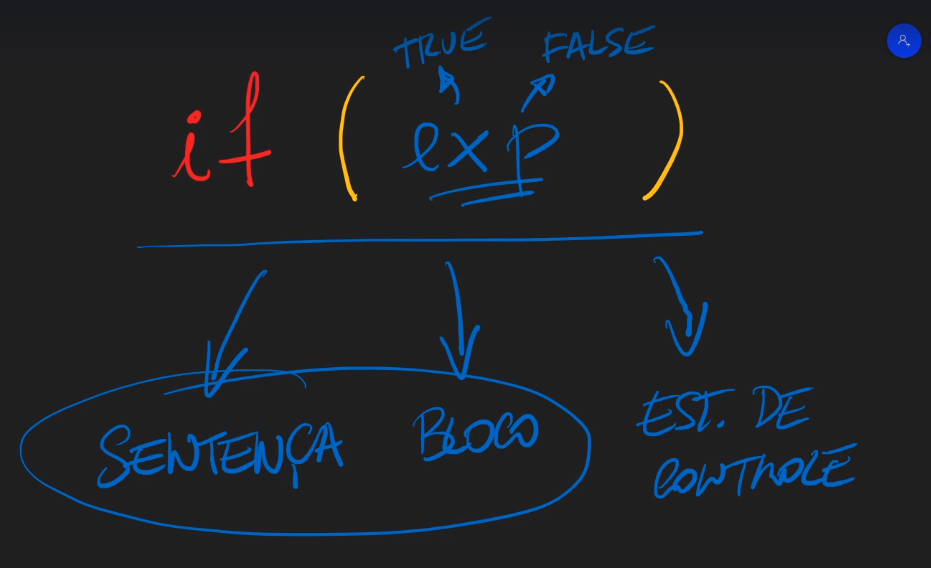 TRUE FALSE
if ( exp )
SENTENÇA BLOCO EST. DE
CONTROLE